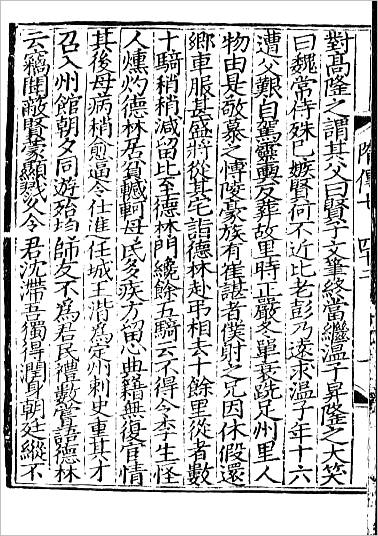 對高隆之謂其父曰賢子文筆終當繼溫子昇隆之大笑
曰魏常侍殊已嫉賢何不近比老彭乃遠求溫子年十六
遭父艱自駕靈輿反葬故里時正嚴冬單衰跣足州里人
物由是敬慕之愽陵豪族有崔諶者僕射之兄因休假還
鄉車服甚盛將從其宅詣德林赴弔相去十餘里從者數
十騎稍稍減留比至德林門纔餘五騎云不得令李生怪
人燻灼德林居貧轗軻母氏多疾方留心典籍無復官情
其後母病稍愈逼令仕進任城王湝爲定州刺史重其才
召入州館朝夕同遊殆均師友不爲君民禮數嘗語德林
云竊聞蔽賢蒙顯戮久令君沈滯吾獨得潤身朝廷縱不